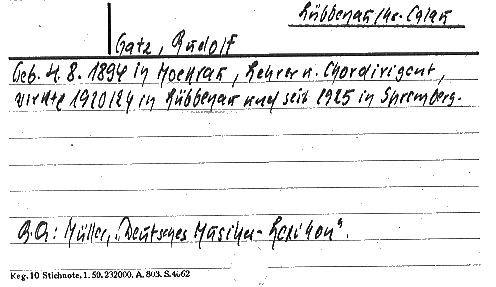 Lübbenau/Kr. Calau
Gatz, Rudolf
Geb. 4. 8. 1894 in Mockrau, Lehrer u. Chordirigent,
wirkte 1920/24 in Lübbenau und seit 1925 in Spremberg.
Müller, „Deutsches Musiker-Lexikon“.
Keg. 10 Stichnote, 1. 50. 232000. A. 803. S. 4662